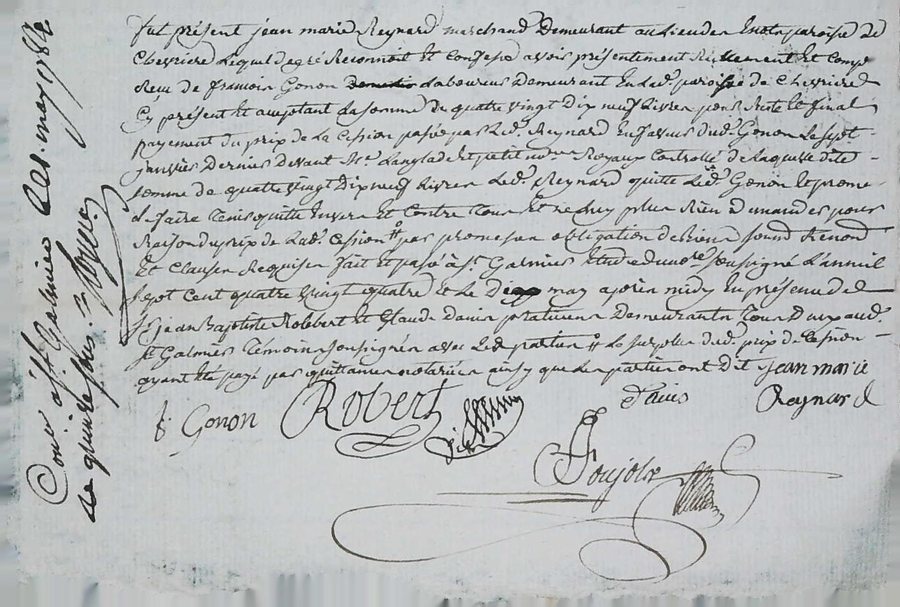 fut présent jean marie Reynard marchand Demeurant au Lieu de paroisse de
Chevriere Lequel de gré Reconnoit Et Confesse avoir présentement Reellement Et Comp
Reçu de françois Gonon Laboureur Demeurant En Lad. paroisse de Chevriere
Cy présent Et aceptant La somme de quatre vingt Dix neuf Livres pour Reste Et final
payement du prix de La Cession passée par Led. Reynard En faveur dud. Gonon Le sept
janvier Dernier Devant Langlade Et petit Royaux Controllé De Laquelle dite
somme de quatre vingt Dix neuf Livres Led. Reynard quitte Led. Gonon Et prome
de faire tenir quitte Envers Et Contre tous Et ne Luy plus Rien Demander pour
Raison du prix de Lad. Cession par promesses obligation de biens Renon
Et Clauses Requises fait Et passé à St. Galmier Etude du no.re soussigné L'an mil
sept Cent quatre vingt quatre Et Le may après midy En présence de
jean Baptiste Robbert Et Claude praticiens Demeurants tous Deux aud.
St. Galmier témoins soussignés avec Led. parties # Le surplus dud. prix de Cession
ayant Eté payé par quittances notariées ainsy que Les parties ont Dit jean marie
f. Gonon Robert Reynard
Conté. à St. Galmier Le may 1784
quinze sous.